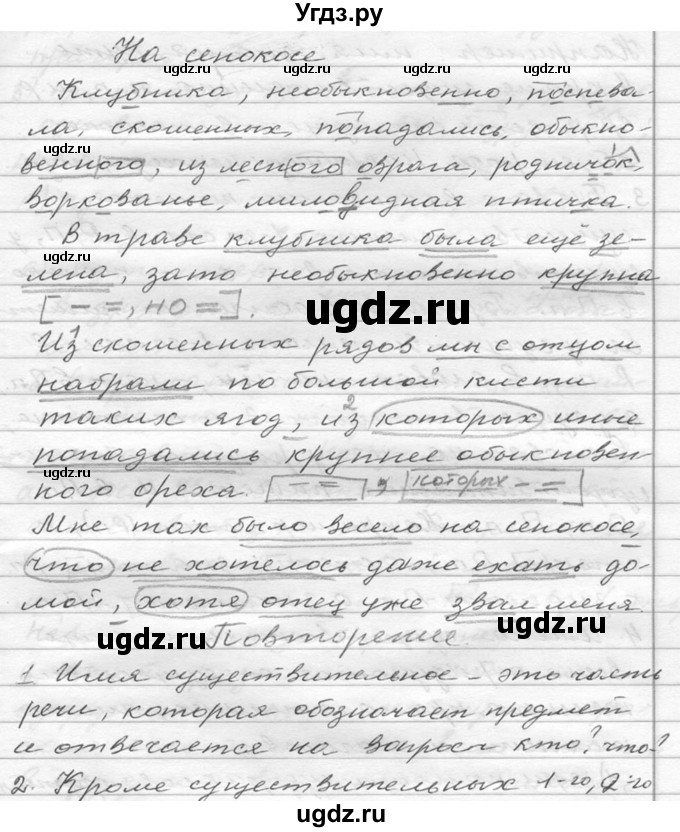 Угдз.ру
На сенокосе
ugdz.ru ugdz.ru
Клубника, необыкновенно, поспева-
ugdz.ru ugdz.ru
ла, скошенных, попадались, обыкно-
венного, из лесного оврага, родничок,
ugdz.ru ugdz.ru
воркованье, миловидная птичка.
В траве клубника была ещё зе-
ugdz.ru
лена, зато необыкновенно крупна
[ – =, но = ].
ugdz.ru
Из скошенных рядов мы с отцом
ugdz.ru
набрали по большой кисти
таких ягод, из которых иные
попадались крупнее обыкновен-
ugdz.ru
ного ореха. [ – = ], [которых – = ]
ugdz.ru
Мне так было весело на сенокосе,
ugdz.ru
что не хотелось даже ехать до-
мой, хотя отец уже звал меня.
ugdz.ru
Повторение.
ugdz.ru ugdz.ru
1 Имя существительное – это часть
речи, которая обозначает предмет
ugdz.ru ugdz.ru
и отвечается на вопросы кто? что?
2. Кроме существительных 1-го, 2-го
ugdz.ru ugdz.ru